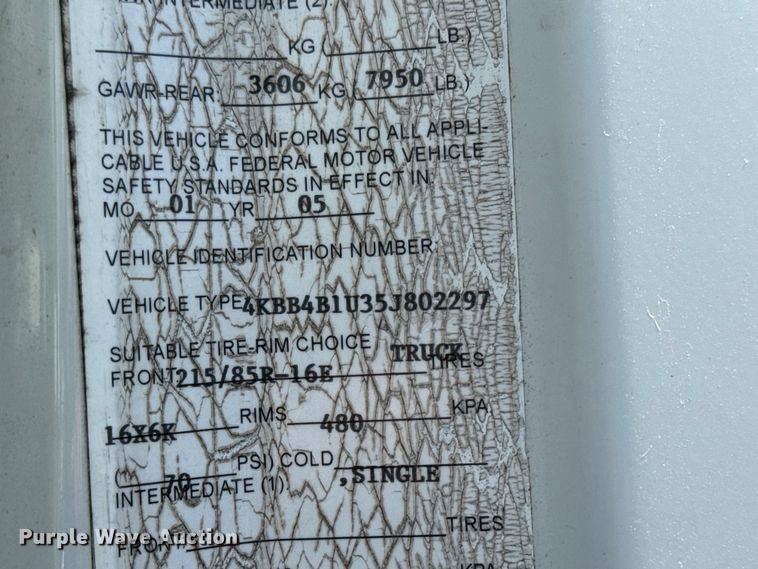 INTERMEDIATE (2).
KG ( LB.)
GAWR-REAR. 3606 KG ( 7950 LB.)
THIS VEHICLE CONFORMS TO ALL APPLI-
CABLE U.S.A. FEDERAL MOTOR VEHICLE
SAFETY STANDARDS IN EFFECT IN:
MO. 01 YR 05
VEHICLE IDENTIFICATION NUMBER:
VEHICLE TYPE 4KBB4B1U35J802297
SUITABLE TIRE-RIM CHOICE TRUCK
FRONT 215/85R-16E TIRES
16X6K RIMS 480 KPA
( 70 PSI) COLD ,SINGLE
INTERMEDIATE (1).
FRONT TIRES
KPA
Purple Wave Auction